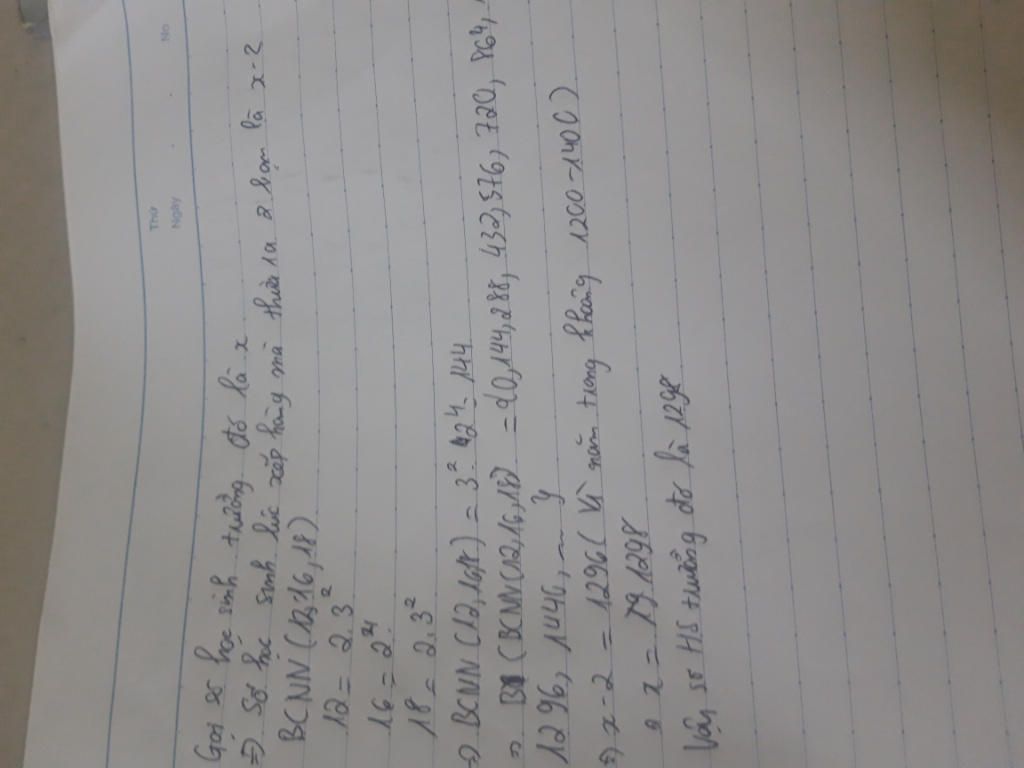 Thứ
Ngày
No
Gọi số học sinh trường đó là x
=) số học sinh lúc xếp hàng mà thừa ra 2 bạn là x-2
BCNN (12,16,18)
12 = 2.3²
16 = 2⁴
18 = 2.3²
=) BCNN (12,16,18) = 3².2⁴=144
=) B (BCNN(12,16,18) = {0,144,288,432,576,720,864,
1296, 1446, ... }
=) x-2 = 1296 ( Vì nằm trong khoảng 1200-1400)
x = 1298
Vậy số HS trường đó là 1298